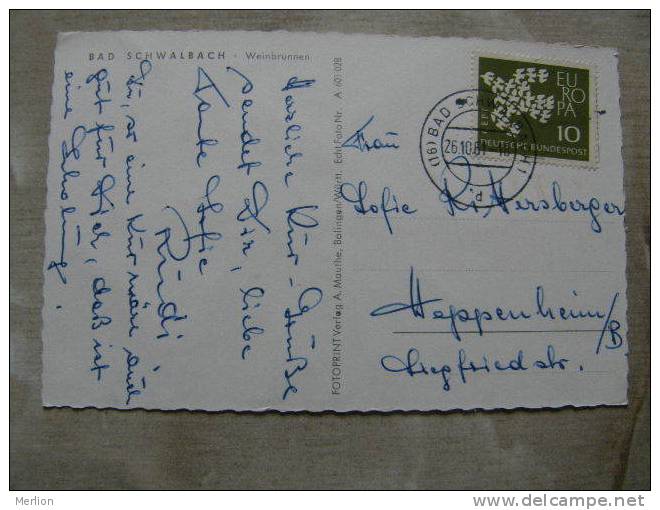 BAD SCHWALBACH · Weinbrunnen
Herzliche Kur-Grüße
sendet Dir, liebe
Tante Sofie
Rudi
so eine Kur wäre auch
gut für Dich, daß ist
eine Erholung.
FOTOPRINT Verlag A. Mauthe, Balingen/Württ. Echt Foto Nr. A 601 028
EUROPA
10
DEUTSCHE BUNDESPOST
(16) BAD SCHWALBACH
26.10.61
Frau
Sofie
Heppenheim/B.
Siegfriedstr.
Merlion
www.delcampe.net